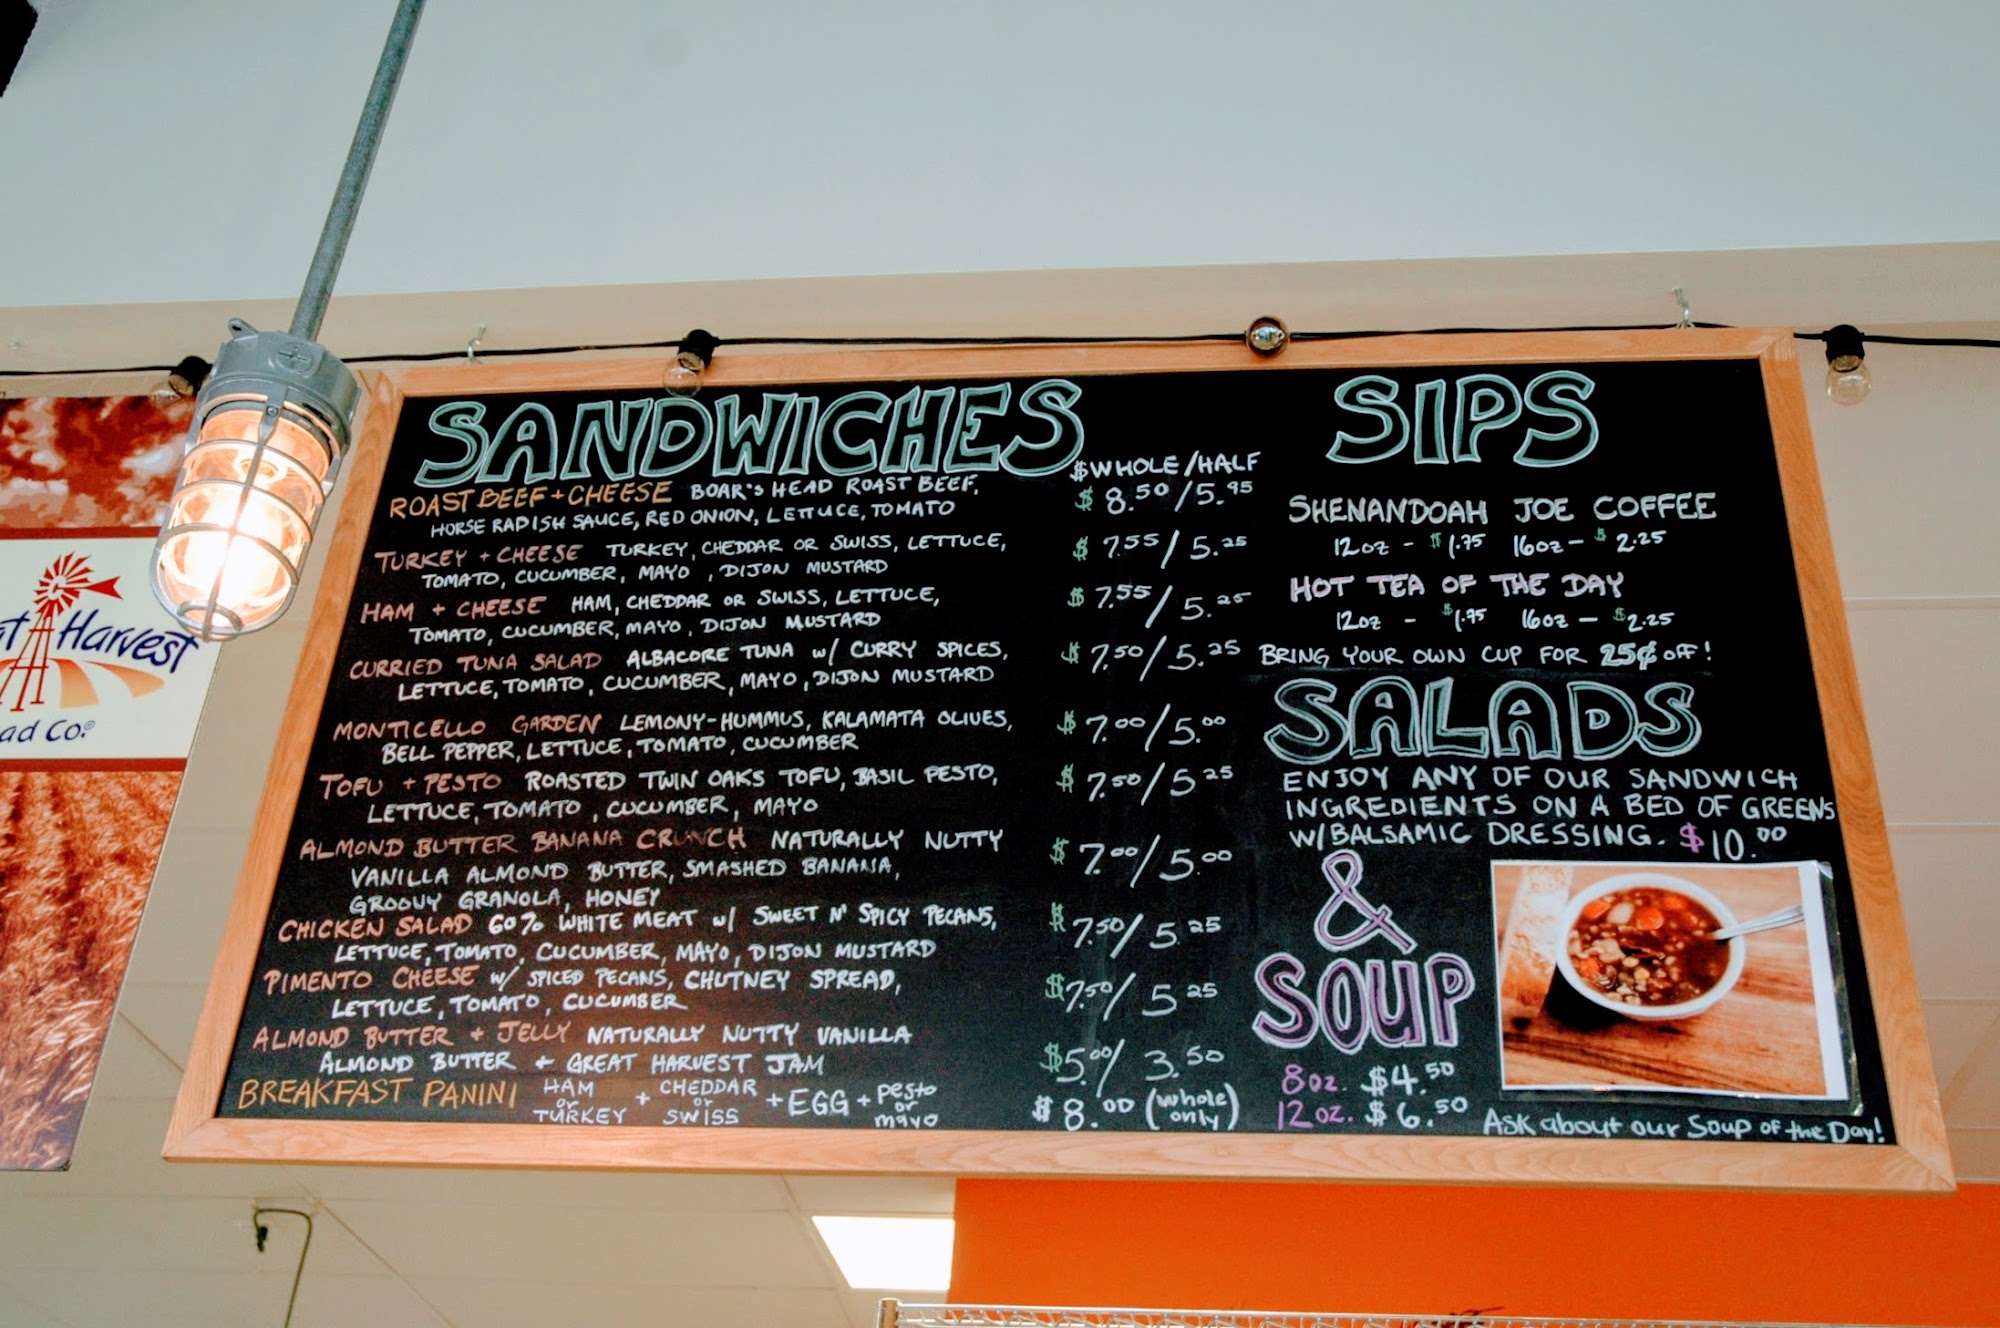 SANDWICHES
$WHOLE/HALF
ROAST BEEF + CHEESE BOAR'S HEAD ROAST BEEF, $8.50/5.95
HORSE RADISH SAUCE, RED ONION, LETTUCE, TOMATO
TURKEY + CHEESE TURKEY, CHEDDAR OR SWISS, LETTUCE, $7.55/5.25
TOMATO, CUCUMBER, MAYO, DIJON MUSTARD
HAM + CHEESE HAM, CHEDDAR OR SWISS, LETTUCE, $7.55/5.25
TOMATO, CUCUMBER, MAYO, DIJON MUSTARD
CURRIED TUNA SALAD ALBACORE TUNA w/ CURRY SPICES, $7.50/5.25
LETTUCE, TOMATO, CUCUMBER, MAYO, DIJON MUSTARD
MONTICELLO GARDEN LEMONY-HUMMUS, KALAMATA OLIVES, $7.00/5.00
BELL PEPPER, LETTUCE, TOMATO, CUCUMBER
TOFU + PESTO ROASTED TWIN OAKS TOFU, BASIL PESTO, $7.50/5.25
LETTUCE, TOMATO, CUCUMBER, MAYO
ALMOND BUTTER BANANA CRUNCH NATURALLY NUTTY $7.00/5.00
VANILLA ALMOND BUTTER, SMASHED BANANA,
GROOVY GRANOLA, HONEY
CHICKEN SALAD 60% WHITE MEAT w/ SWEET N' SPICY PECANS, $7.50/5.25
LETTUCE, TOMATO, CUCUMBER, MAYO, DIJON MUSTARD
PIMENTO CHEESE w/ SPICED PECANS, CHUTNEY SPREAD, $7.50/5.25
LETTUCE, TOMATO, CUCUMBER
ALMOND BUTTER + JELLY NATURALLY NUTTY VANILLA
ALMOND BUTTER + GREAT HARVEST JAM $5.00/3.50
BREAKFAST PANINI HAM or TURKEY + CHEDDAR or SWISS + EGG + pesto or mayo $8.00 (whole only)
SIPS
SHENANDOAH JOE COFFEE
12oz - $1.75 16oz - $2.25
HOT TEA OF THE DAY
12oz - $1.75 16oz - $2.25
BRING YOUR OWN CUP FOR 25¢ OFF!
SALADS
ENJOY ANY OF OUR SANDWICH
INGREDIENTS ON A BED OF GREENS
W/BALSAMIC DRESSING. $10.00
&
SOUP
8oz. $4.50
12oz. $6.50
Ask about our Soup of the Day!
Harvest
Co.®